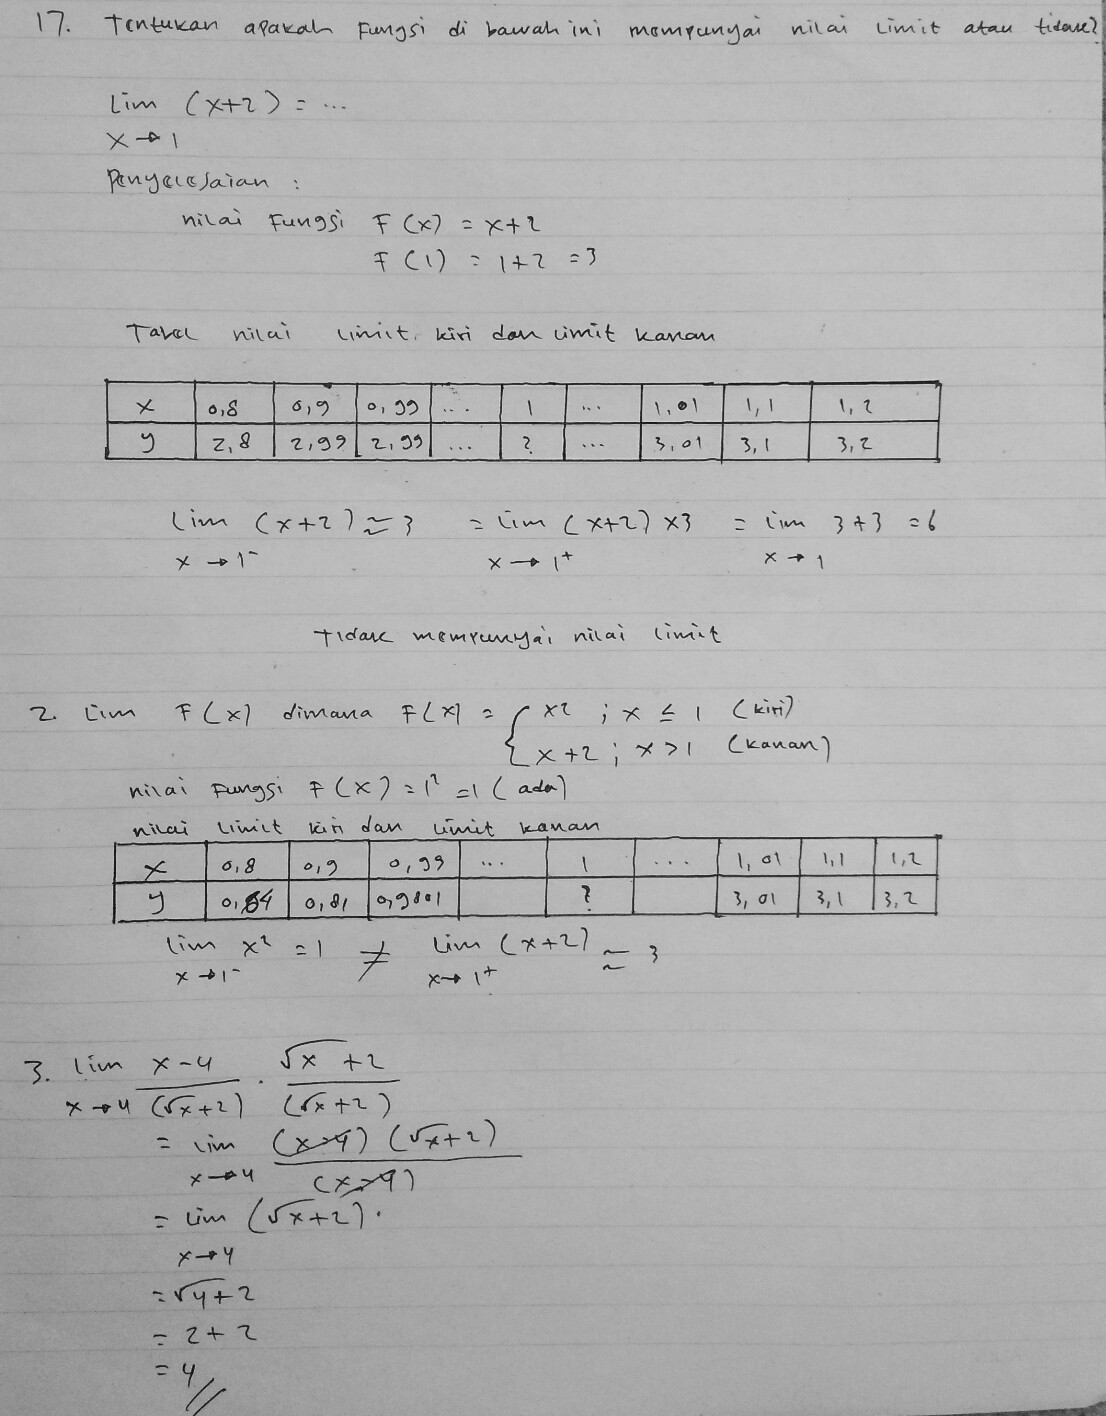 17. Tentukan apakah Fungsi di bawah ini mempunyai nilai limit atau tidak?
Lim (x+2) = ...
x → 1
Penyelesaian :
nilai Fungsi F (x) = x+2
F (1) = 1+2 = 3
Tabel nilai limit kiri dan limit kanan
x 0,8 0,9 0,99 ... 1 ... 1,01 1,1 1,2
y 2,8 2,99 2,99 ... ? ... 3,01 3,1 3,2
Lim (x+2) ≃ 3 = Lim (x+2) x3 = Lim 3+3 = 6
x → 1⁻ x → 1⁺ x → 1
Tidak mempunyai nilai limit
2. Lim F(x) dimana F(x) = { x2 ; x ≤ 1 (kiri)
x+2 ; x > 1 (kanan)
nilai Fungsi F(x) = 1² = 1 (ada)
nilai limit kiri dan limit kanan
x 0,8 0,9 0,99 ... 1 ... 1,01 1,1 1,2
y 0,64 0,81 0,9801 ? 3,01 3,1 3,2
lim x² = 1 ≠ Lim (x+2) ≃ 3
x → 1⁻ x → 1⁺
3. lim x-4 . √x +2
x → 4 (√x+2) (√x+2)
= lim (x-4) (√x+2)
x → 4 (x-4)
= Lim (√x+2).
x → 4
= √4+2
= 2+2
= 4//